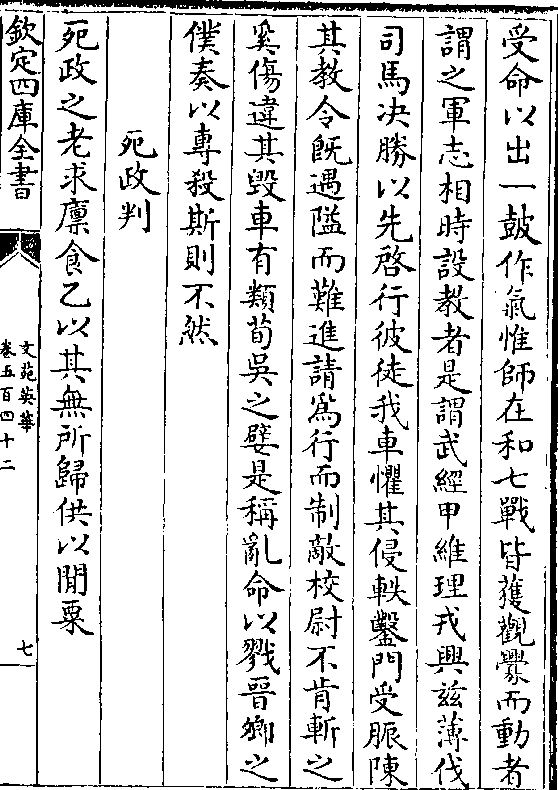 受命以出一鼓作氣惟師在和七戰皆獲觀釁而動者
謂之軍志相時設教者是謂武經甲維理戎興兹薄伐
司馬决勝以先啓行彼徒我車懼其侵軼鑿門受脈陳
其教令旣遇隘而難進請爲行而制敵校尉不肯斬之
奚傷違其毁車有類荀吳之嬖是稱亂命以戮晉卿之
僕奏以專殺斯則不然
死政判
死政之老求廪食乙以其無所歸供以閒粟
欽定四庫全書
文苑英華
卷五百四十二
七